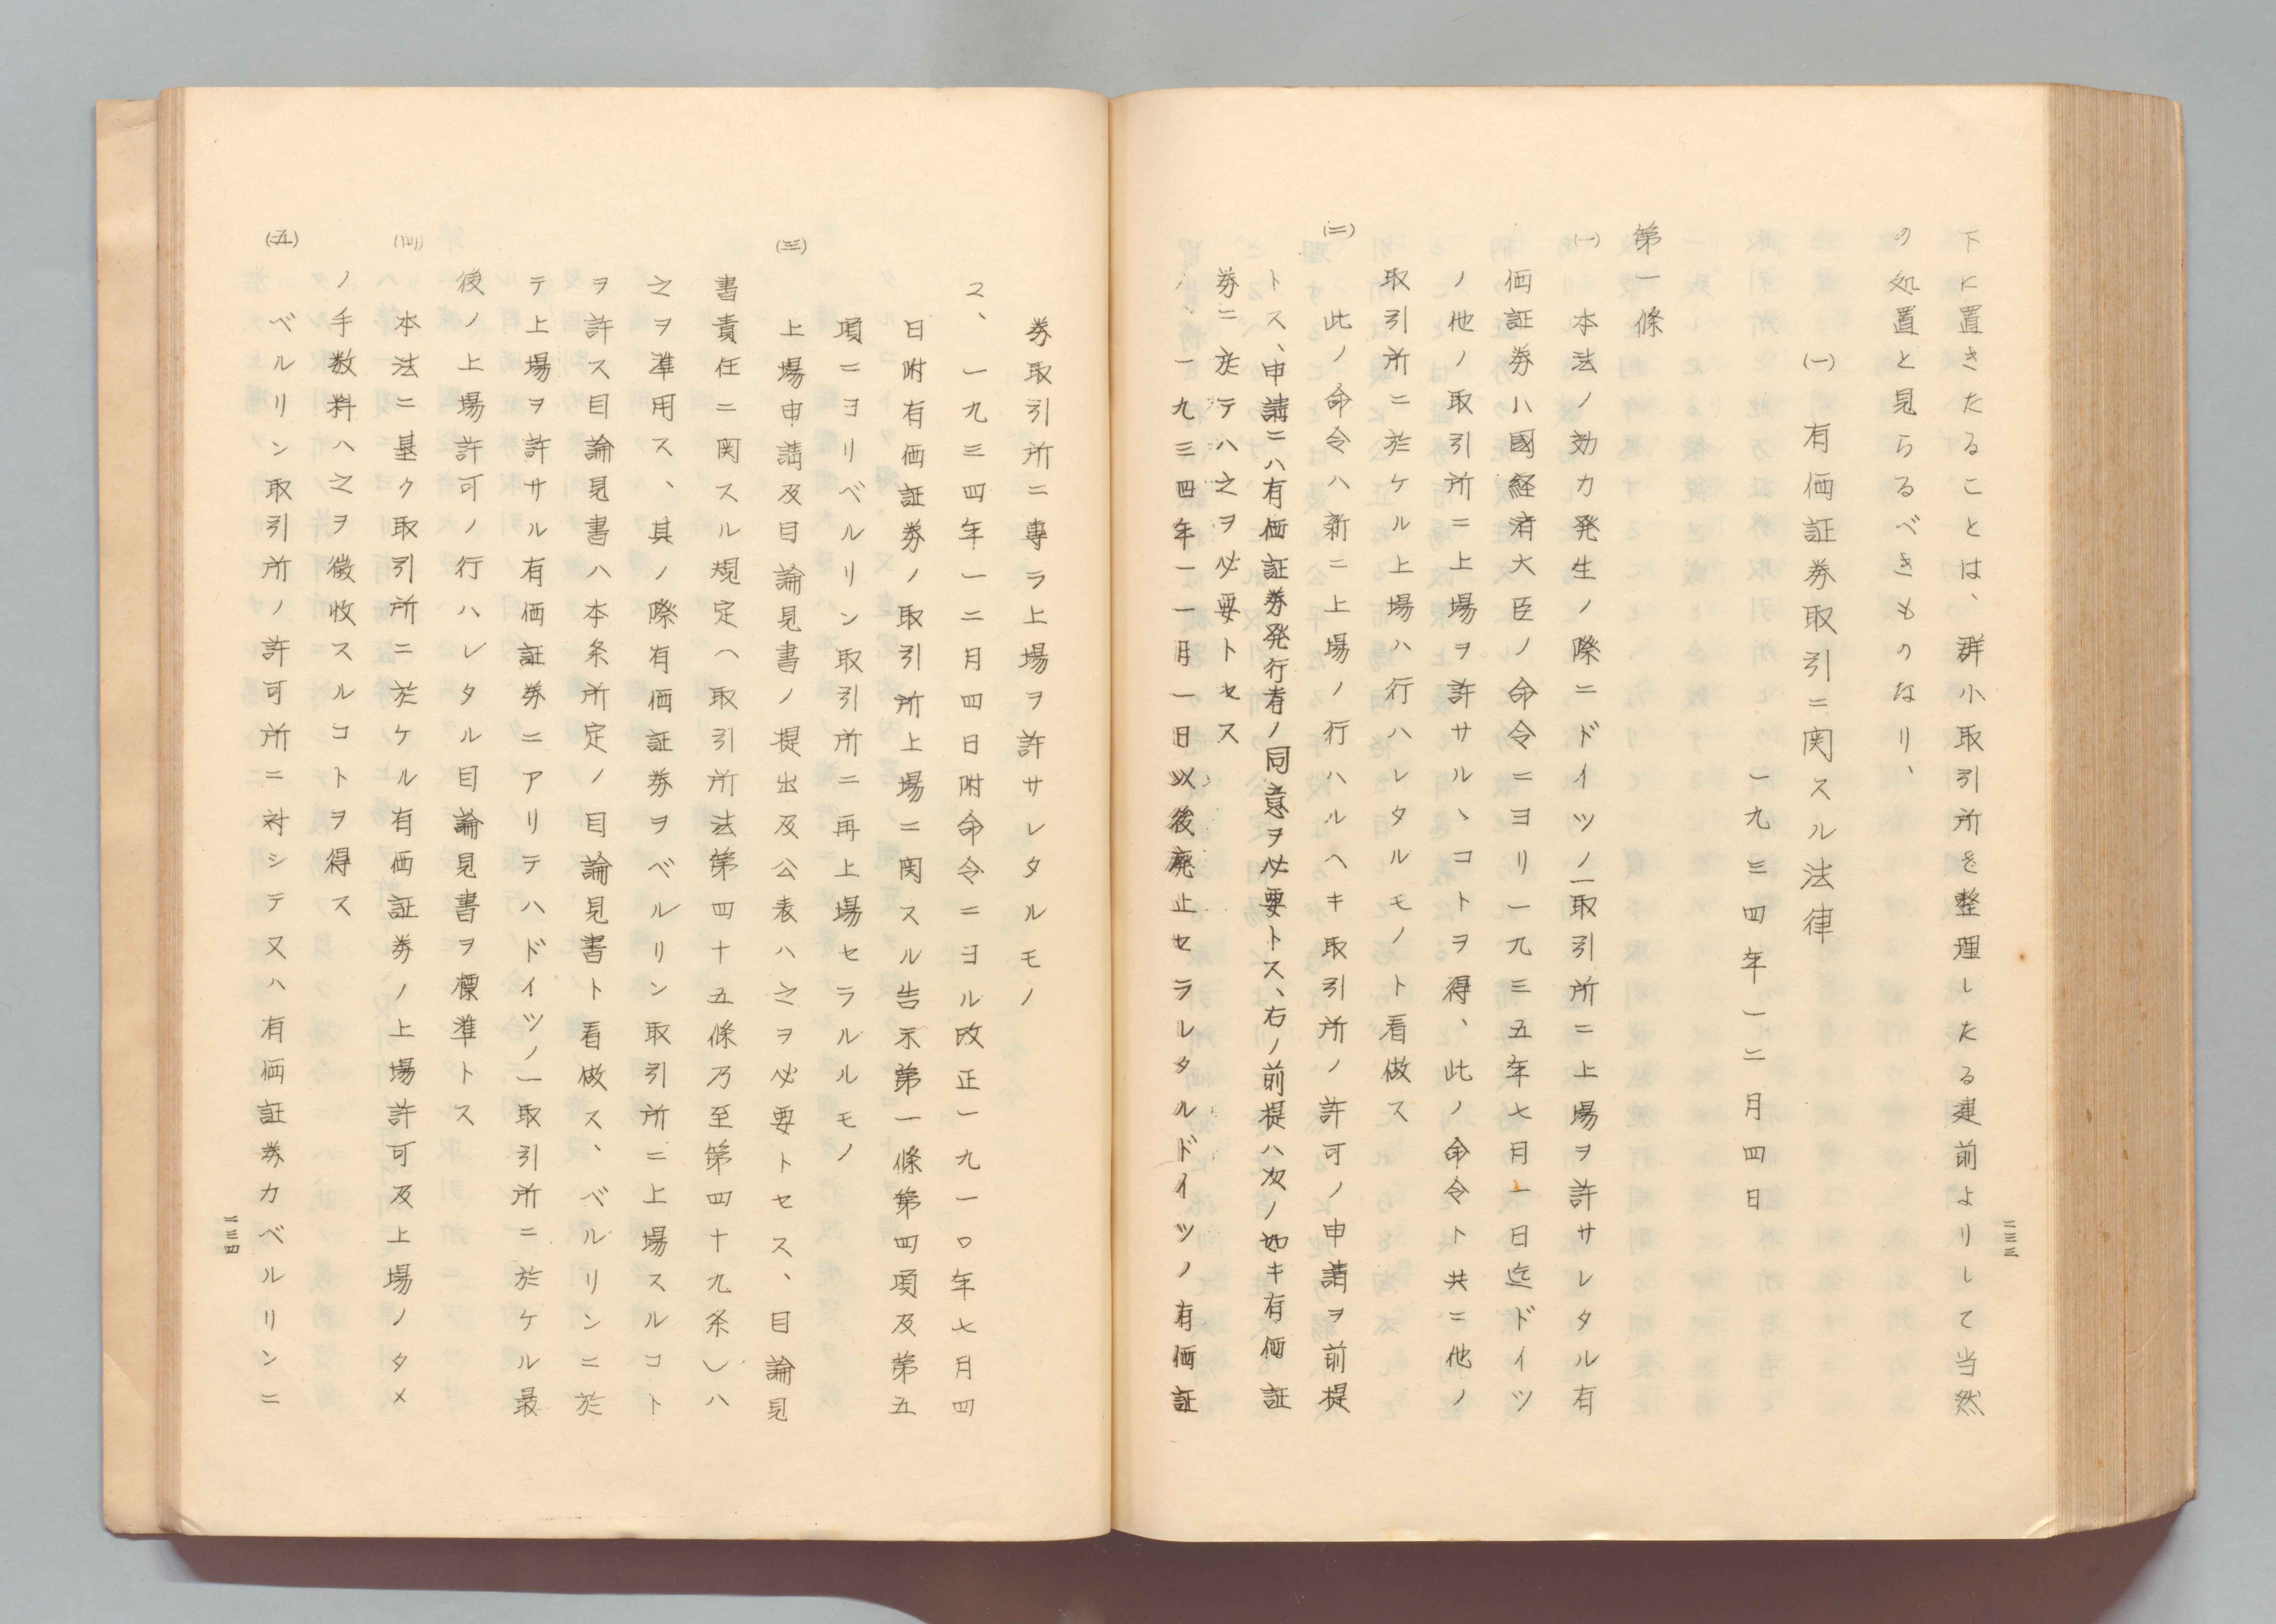 下に置きたることは、群小取引所を整理したる建前よりして当然
の処置と見らるべきものなり、
(一) 有価証券取引ニ関スル法律
一九三四年一二月四日
第一條
(一) 本法ノ効力発生ノ際ニドイツノ一取引所ニ上場ヲ許サレタル有
価証券ハ國経済大臣ノ命令ニヨリ一九三五年七月一日迄ドイツ
ノ他ノ取引所ニ上場ヲ許サルヽコトヲ得、此ノ命令ト共ニ他ノ
取引所ニ於ケル上場ハ行ハレタルモノト看做ス
(二) 此ノ命令ハ新ニ上場ノ行ハルヘキ取引所ノ許可ノ申請ヲ前提
トス、申請ニハ有価証券発行者ノ同意ヲ必要トス、右ノ前提ハ次ノ如キ有価証
券ニ於テハ之ヲ必要トセス
一、一九三四年一一月一日以後廃止セラレタルドイツノ有価証
二三三
券取引所ニ専ラ上場ヲ許サレタルモノ
2、一九三四年一二月四日附命令ニヨル改正一九一〇年七月四
日附有価証券ノ取引所上場ニ関スル告示第一條第四項及第五
項ニヨリベルリン取引所ニ再上場セラルルモノ
(三) 上場申請及目論見書ノ提出及公表ハ之ヲ必要トセス、目論見
書責任ニ関スル規定(取引所法第四十五條乃至第四十九条)ハ
之ヲ準用ス、其ノ際有価証券ヲベルリン取引所ニ上場スルコト
ヲ許ス目論見書ハ本条所定ノ目論見書ト看做ス、ベルリンニ於
テ上場ヲ許サル有価証券ニアリテハドイツノ一取引所ニ於ケル最
後ノ上場許可ノ行ハレタル目論見書ヲ標準トス
(四) 本法ニ基ク取引所ニ於ケル有価証券ノ上場許可及上場ノタメ
ノ手数料ハ之ヲ徴收スルコトヲ得ス
(五) ベルリン取引所ノ許可所ニ対シテ又ハ有価証券カベルリンニ
二三四